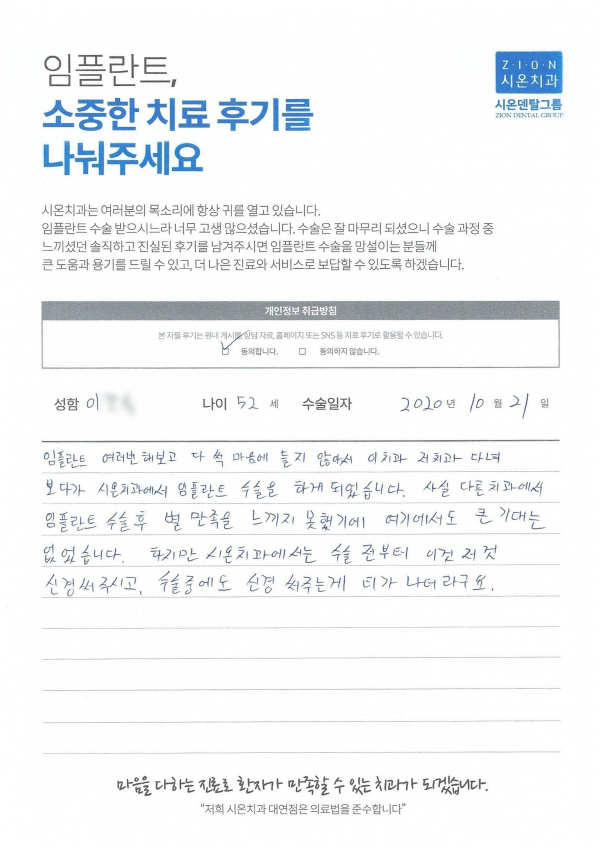 임플란트,
소중한 치료 후기를
나눠주세요
Z·I·O·N
시온치과
시온덴탈그룹
ZION DENTAL GROUP
시온치과는 여러분의 목소리에 항상 귀를 열고 있습니다.
임플란트 수술 받으시느라 너무 고생 많으셨습니다. 수술은 잘 마무리 되셨으니 수술 과정 중
느끼셨던 솔직하고 진실된 후기를 남겨주시면 임플란트 수술을 망설이는 분들께
큰 도움과 용기를 드릴 수 있고, 더 나은 진료와 서비스로 보답할 수 있도록 하겠습니다.
개인정보 취급방침
본 자필 후기는 원내 게시물, 상담 자료, 홈페이지 또는 SNS 등 치료 후기로 활용될 수 있습니다.
동의합니다. 동의하지 않습니다.
성함 이 나이 52 세 수술일자 2020 년 10 월 21 일
임플란트 여러번 해보고 다 썩 마음에 들지 않아서 이치과 저치과 다녀
보다가 시온치과에서 임플란트 수술을 하게 되었습니다. 사실 다른 치과에서
임플란트 수술 후 별 만족을 느끼지 못했기에 여기에서도 큰 기대는
없었습니다. 하지만 시온치과에서는 수술 전부터 이것 저것
신경써 주시고, 수술중에도 신경 써주는게 티가 나더라구요.
마음을 다하는 진료로 환자가 만족할 수 있는 치과가 되겠습니다.
“저희 시온치과 대연점은 의료법을 준수합니다”